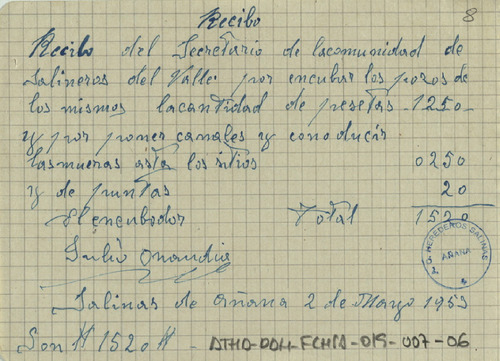 Recibo
8
Recibo del Secretario de lacomunidad de
Salineros del Valle por encubar los pozos de
los mismos lacantidad de pesetas - 1250 -
y por poner canales y conducir
lasmueras asta los sitios 0250
y de puntas 20
El encubador Total 1520
Julio
HEREDEROS SALINAS
AÑANA
Salinas de Añana 2 de Mayo 1953
Son # 1520 #
ATHA-DAH-FCHPA-019-007-06